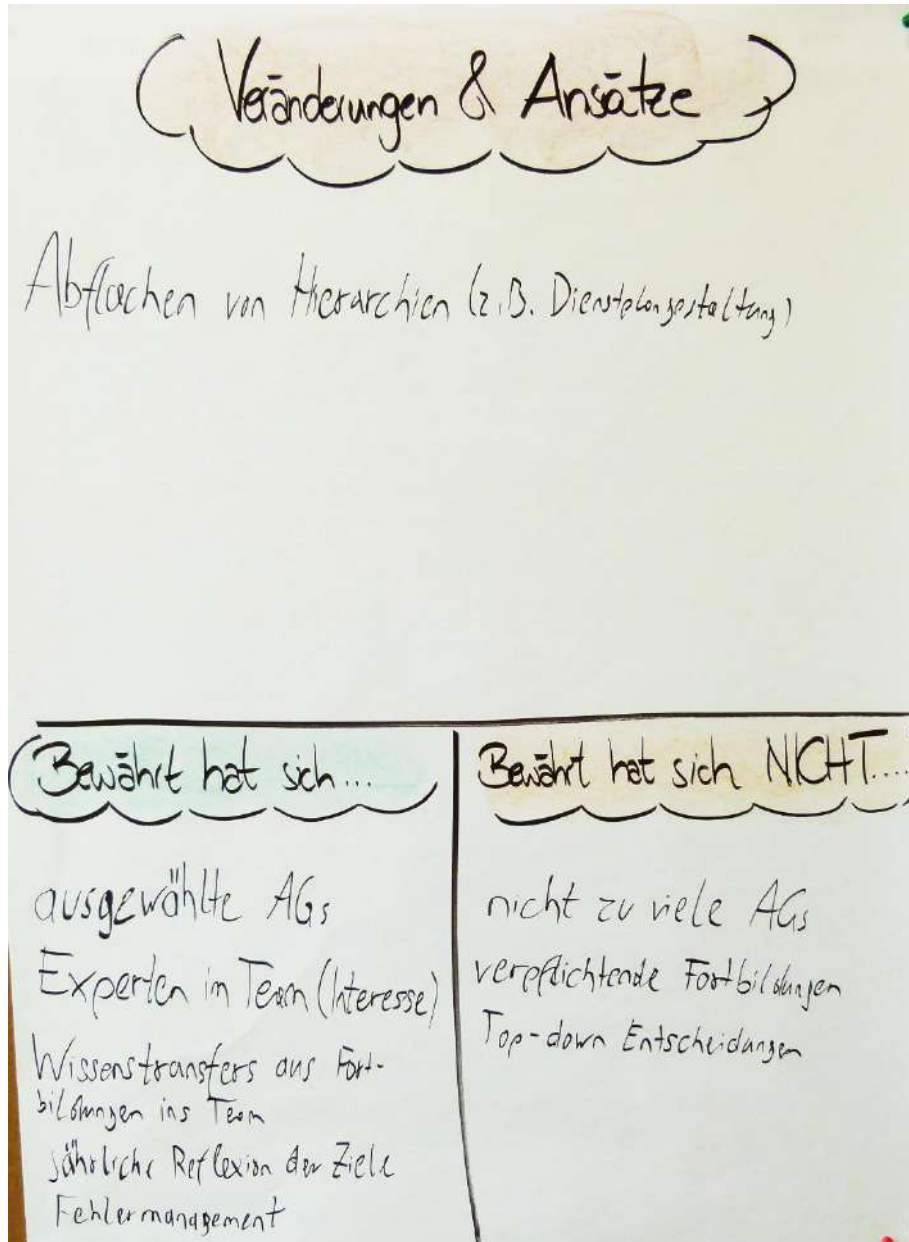 Veränderungen & Ansätze
Abflachen von Hierarchien (z.B. Dienstplangestaltung)
Bewährt hat sich...
ausgewählte AGs
Experten im Team (Interesse)
Wissenstransfers aus Fort-
bildungen ins Team
jährliche Reflexion der Ziele
Fehlermanagement
Bewährt hat sich NICHT....
nicht zu viele AGs
verpflichtende Fortbildungen
Top-down Entscheidungen